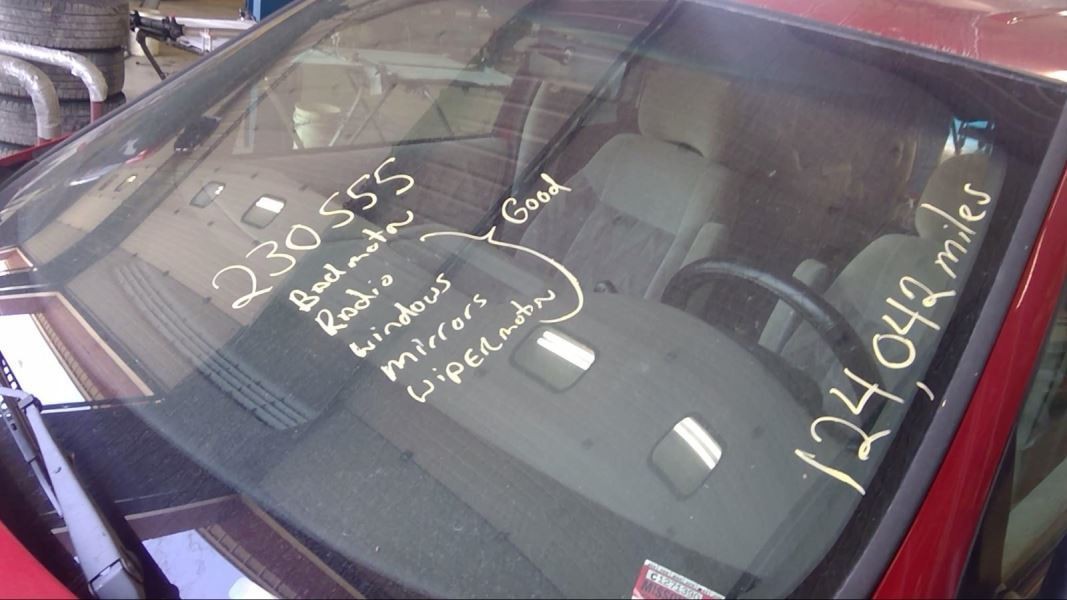 230555
Bad motor
Radio
windows
mirrors
WIPER motor
Good
124,042 miles